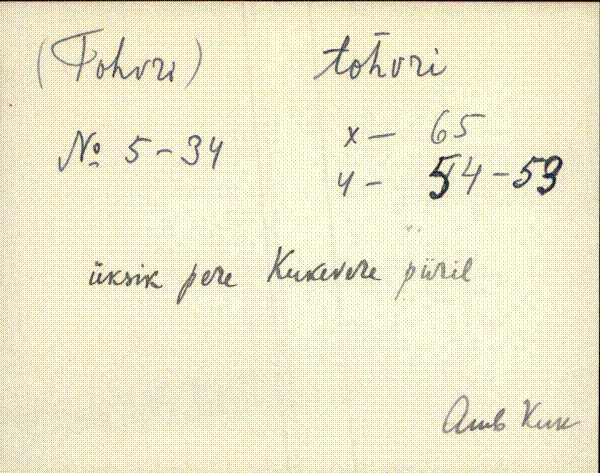 (Tohvri) tohvri
№ 5-34 x - 65
y - 54-53
üksik pere Kukevere piiril
Amb Kuk